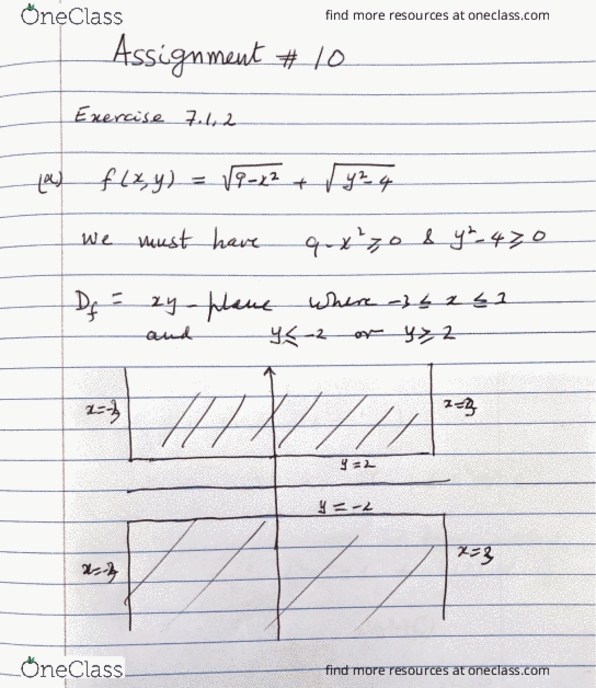 OneClass
find more resources at oneclass.com
Assignment # 10
Exercise 7.1, 2
(a) f(x,y) = √9-x² + √y²-4
We must have 9-x² ≥ 0 & y²-4 ≥ 0
Df = xy-plane where -3 ≤ x ≤ 3
and y ≤ -2 or y ≥ 2
x=-3
x=3
y=2
y=-2
x=-3
x=3
OneClass
find more resources at oneclass.com